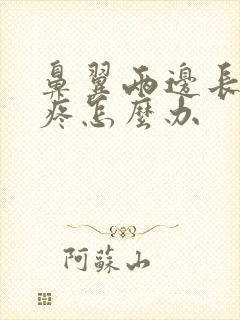 鼻翼兩邊長
疼怎麼办
阿蘇山